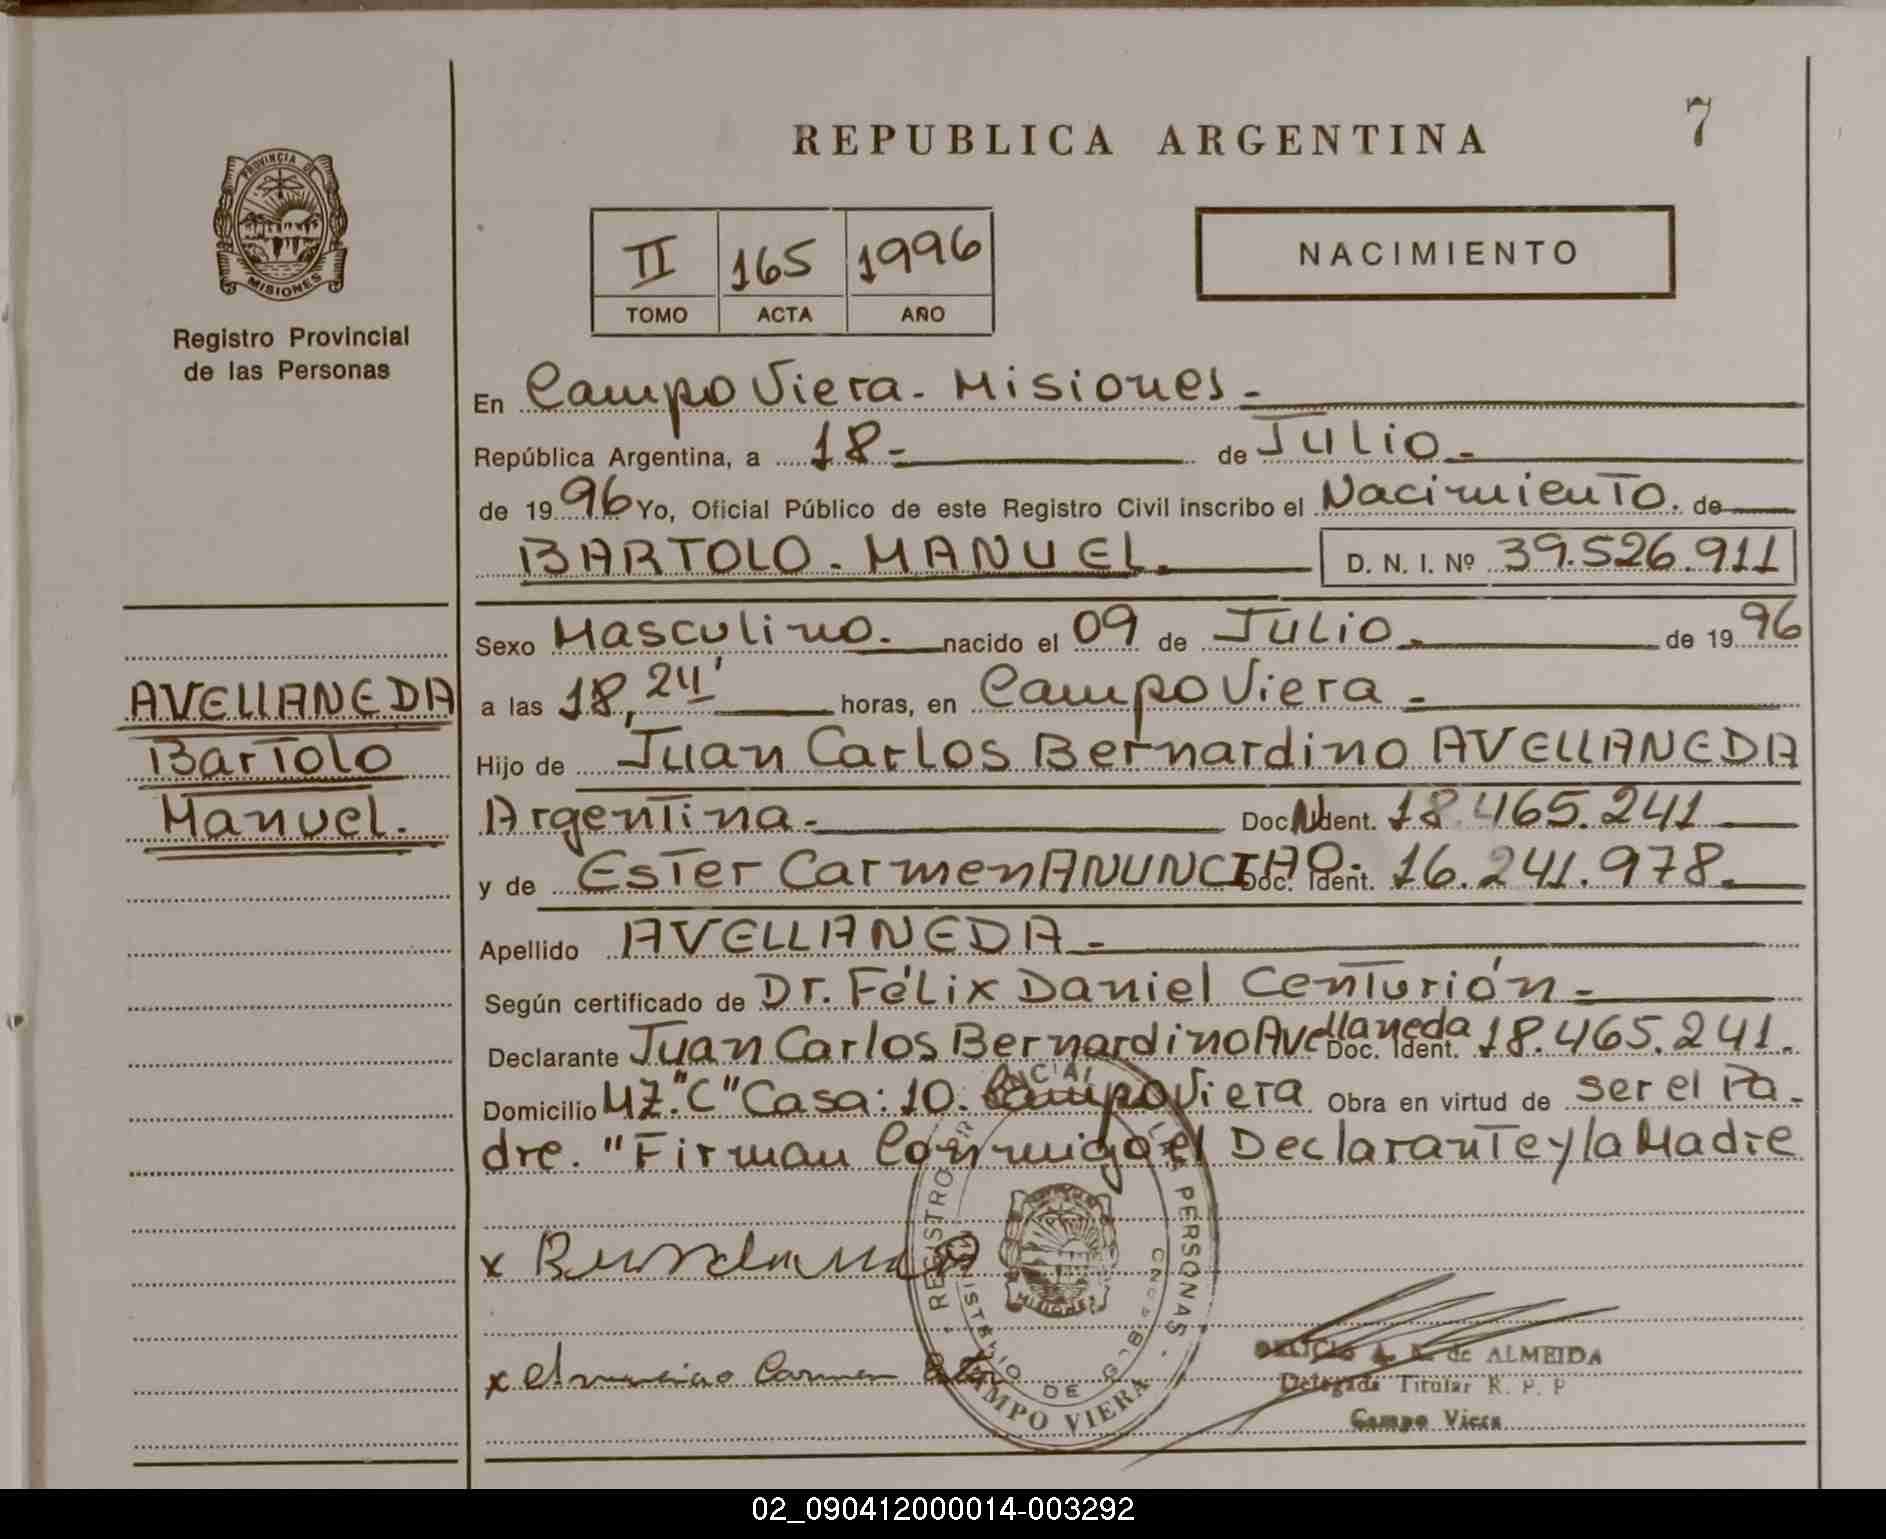 REPUBLICA ARGENTINA
7
PROVINCIA DE
MISIONES
Registro Provincial
de las Personas
II 165 1996
TOMO ACTA AÑO
NACIMIENTO
En Campo Viera - Misiones -
República Argentina, a 18 - de Julio -
de 1996 Yo, Oficial Público de este Registro Civil inscribo el Nacimiento. de
BARTOLO - MANUEL. D. N. I. Nº 39.526.911
Sexo Masculino. nacido el 09 de Julio. de 1996
a las 18,24' horas, en Campo Viera -
Hijo de Juan Carlos Bernardino AVELLANEDA
Argentina - Doc. N Ident. 18.465.241
y de Ester Carmen ANUNCIAO. Doc. Ident. 16.241.978.
Apellido AVELLANEDA -
Según certificado de Dr. Félix Daniel Centurión -
Declarante Juan Carlos Bernardino Avellaneda Doc. Ident. 18.465.241.
Domicilio MZ. "C" Casa: 10. Campo Viera Obra en virtud de ser el Pa-
dre. "Firman Conmigo el Declarante y la Madre
AVELLANEDA
Bartolo
Manuel.
x
x Anunciao Carmen Ester
REGISTRO PERSONAS
MISIONES
MINISTERIO DE GOB
CAMPO VIERA
de ALMEIDA
Delegada Titular R. P. P
Campo Viera
02_090412000014-003292